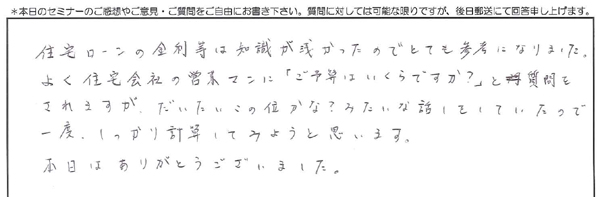 *本日のセミナーのご感想やご意見・ご質問をご自由にお書き下さい。質問に対しては可能な限りですが、後日郵送にて回答申し上げます。
住宅ローンの金利等は知識が浅かったのでとても参考になりました。
よく住宅会社の営業マンに「ご予算はいくらですか?」と質問を
されますが、だいたいこの位かな?みたいな話しをしていたので
一度、しっかり計算してみようと思います。
本日はありがとうございました。